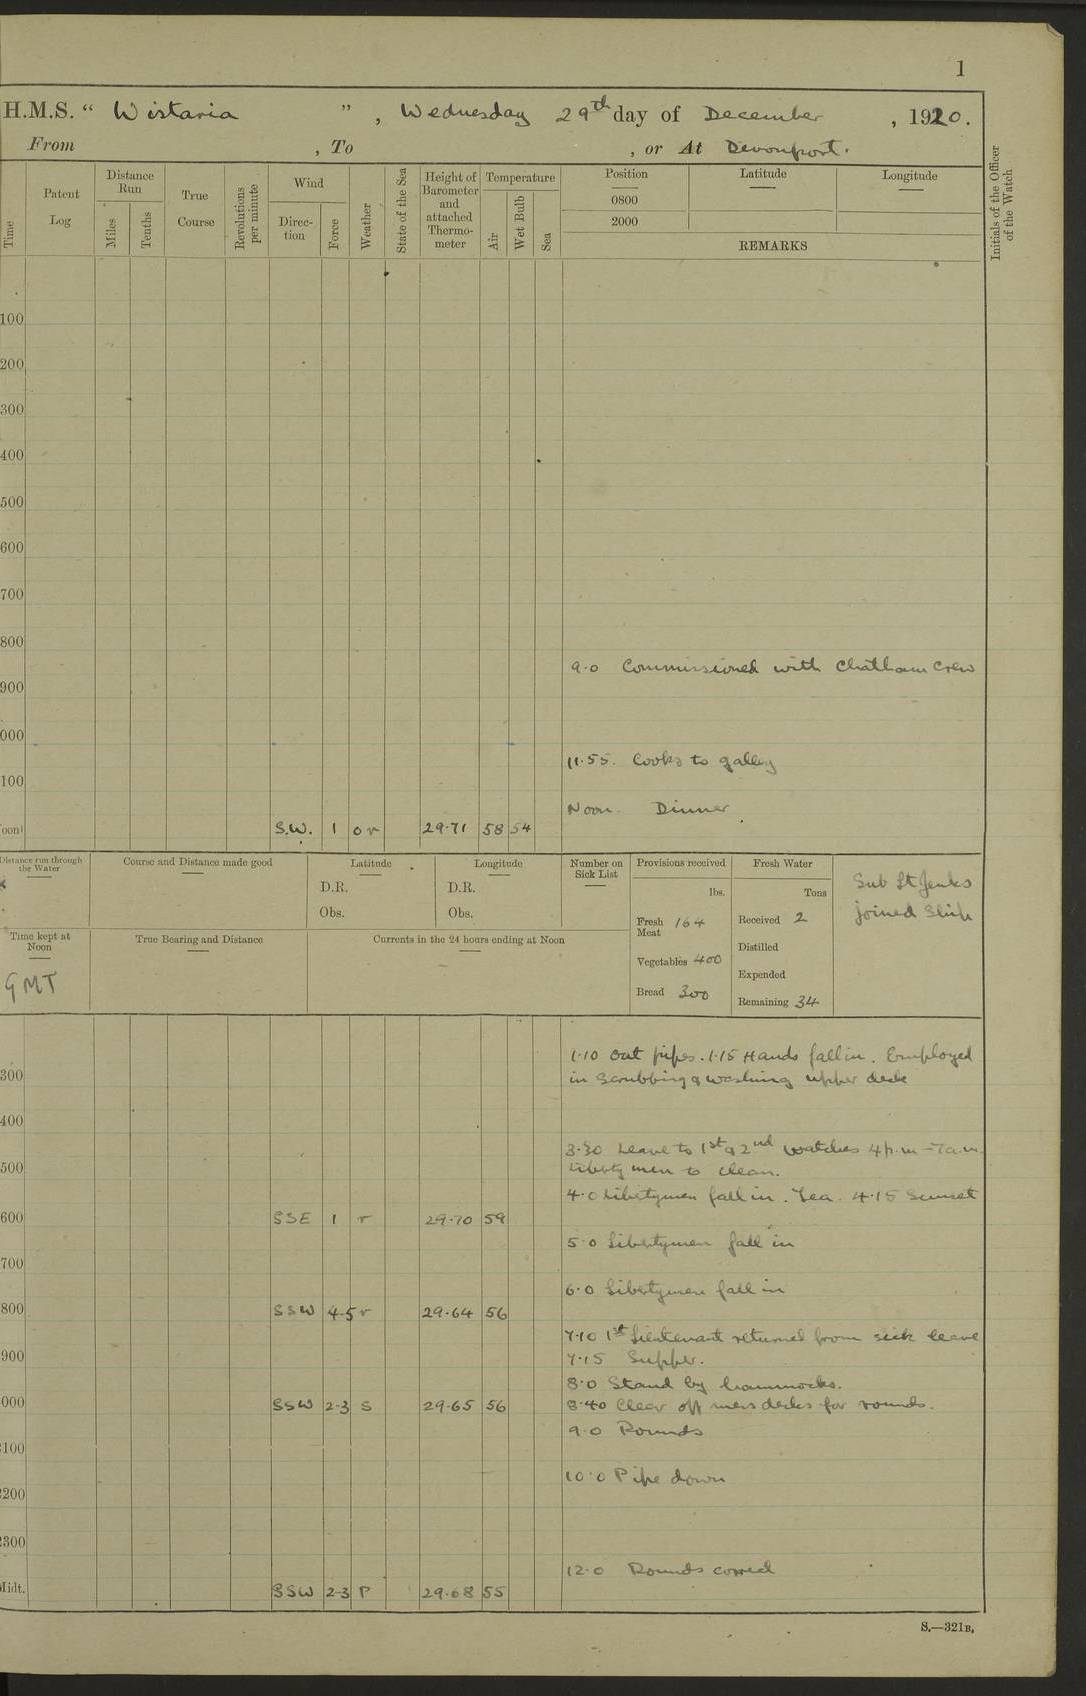 1
H.M.S. “ Wistaria ” , Wednesday 29th day of December , 1920.
From , To , or At Devonport.
Time
Patent Log
Distance Run
Miles
Tenths
True Course
Revolutions per minute
Wind
Direc-tion
Force
Weather
State of the Sea
Height of Barometer and attached Thermo-meter
Temperature
Air
Wet Bulb
Sea
Position
Latitude
Longitude
0800
2000
REMARKS
Initials of the Officer of the Watch
100
200
300
400
500
600
700
800
9.0 Commissioned with Chatham Crew
900
000
11.55. Cooks to galley
100
Noon. Dinner
oon S.W. 1 o r 29.71 58 54
Distance run through the Water
Course and Distance made good
Latitude
D.R.
Obs.
Longitude
D.R.
Obs.
Number on Sick List
Provisions received
lbs.
Fresh Meat 164
Vegetables 400
Bread 300
Fresh Water
Tons
Received 2
Distilled
Expended
Remaining 34
Sub Lt Jenks
joined Ship
Time kept at Noon
GMT
True Bearing and Distance
Currents in the 24 hours ending at Noon
1.10 Out pipes. 1.15 Hands fall in. Employed
300 in Scrubbing & washing upper deck
400
3.30 Leave to 1st & 2nd watches 4 p.m – 7 a.m.
500 Liberty men to clean.
4.0 Libertymen fall in. Tea. 4.15 Sunset
600 SSE 1 r 29.70 59
5.0 Libertymen fall in
700
6.0 Libertymen fall in
800 SSW 4-5 r 29.64 56
7.10 1st Lieutenant returned from sick leave
900 7.15 Supper.
8.0 Stand by hammocks.
000 SSW 2-3 S 29.65 56 8.40 Clear off mess decks for rounds.
9.0 Rounds
100
10.0 Pipe down
200
300
12.0 Rounds correct
Midt. SSW 2-3 P 29.68 55
S.—321B.